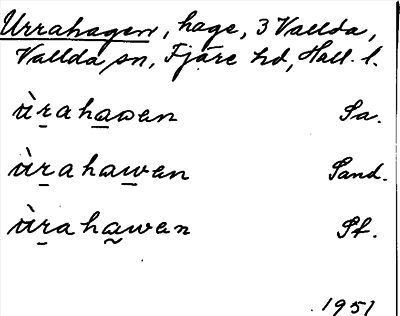 Urrahagen, hage, 3 Vallda,
Vallda sn, Fjäre hd, Hall. l.
ùrahaωen Sa.
ùrahawen Sand.
ùrahawen St.
1951